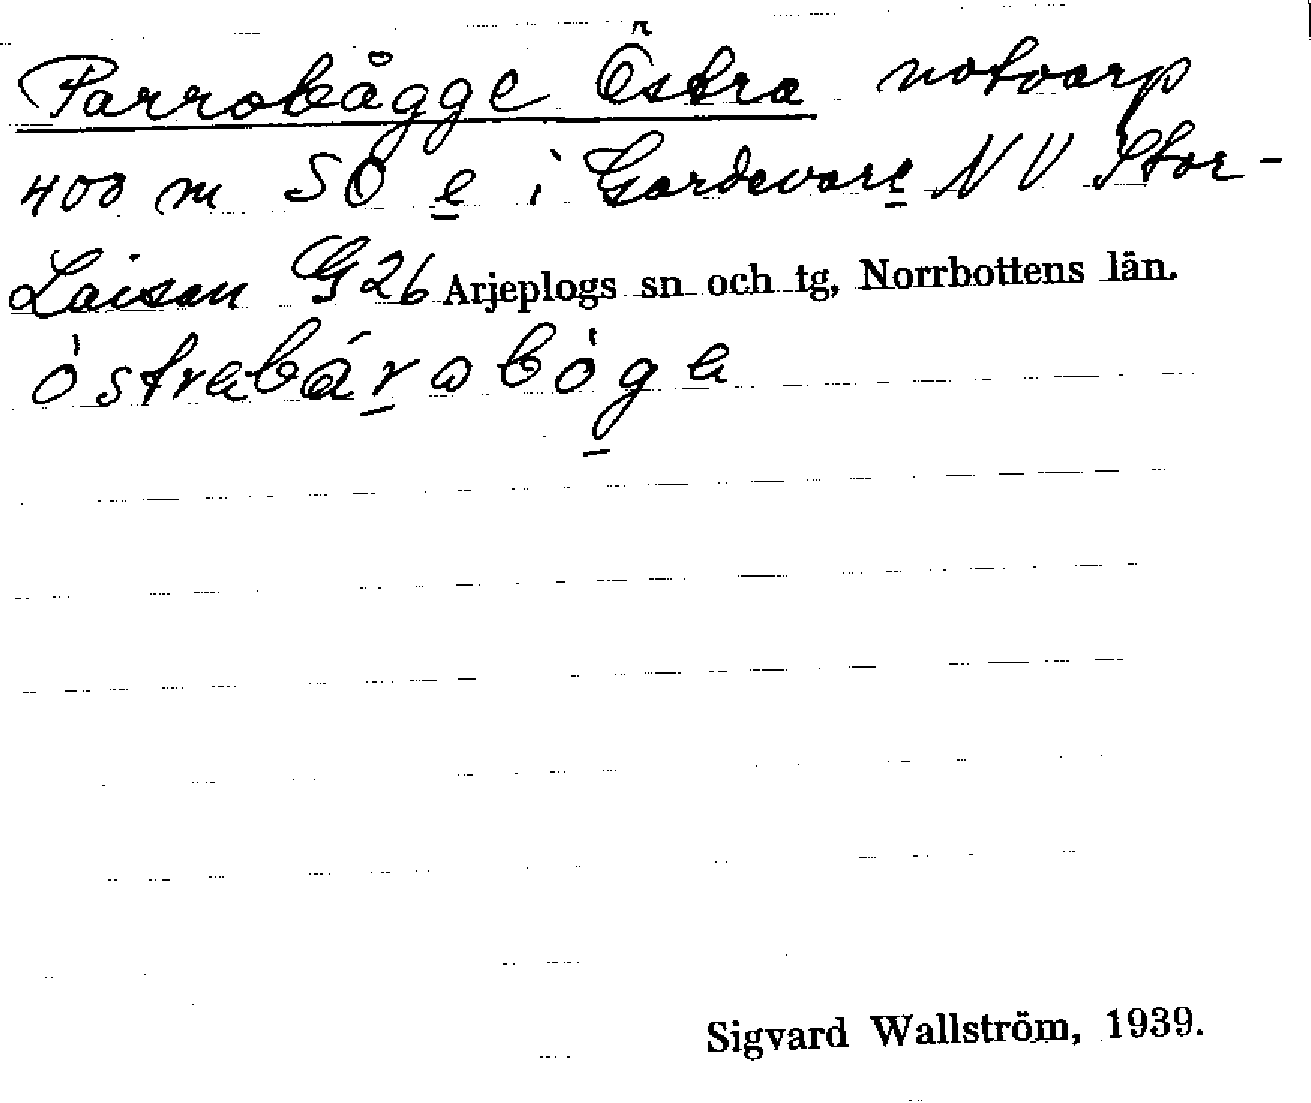 Parrobågge Östra notvarp
400 m SO e i Gardevare NV Stor-
Laisan G26 Arjeplogs sn och tg, Norrbottens län.
òstrabárabòga
Sigvard Wallström, 1939.